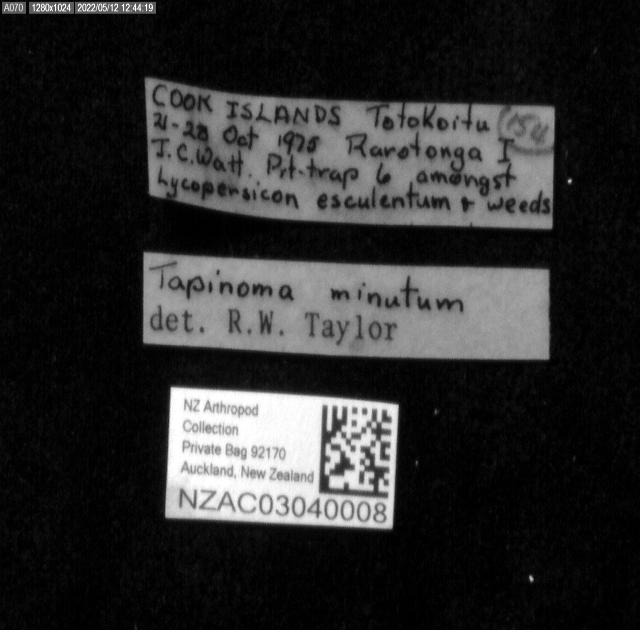 A070 1280x1024 2022/05/12 12:44:19
COOK ISLANDS Totokoitu
21-28 Oct 1975 Rarotonga I
J.C. Watt. Pit-trap 6 amongst
Lycopersicon esculentum & weeds
Tapinoma minutum
det. R.W. Taylor
NZ Arthropod
Collection
Private Bag 92170
Auckland, New Zealand
NZAC03040008